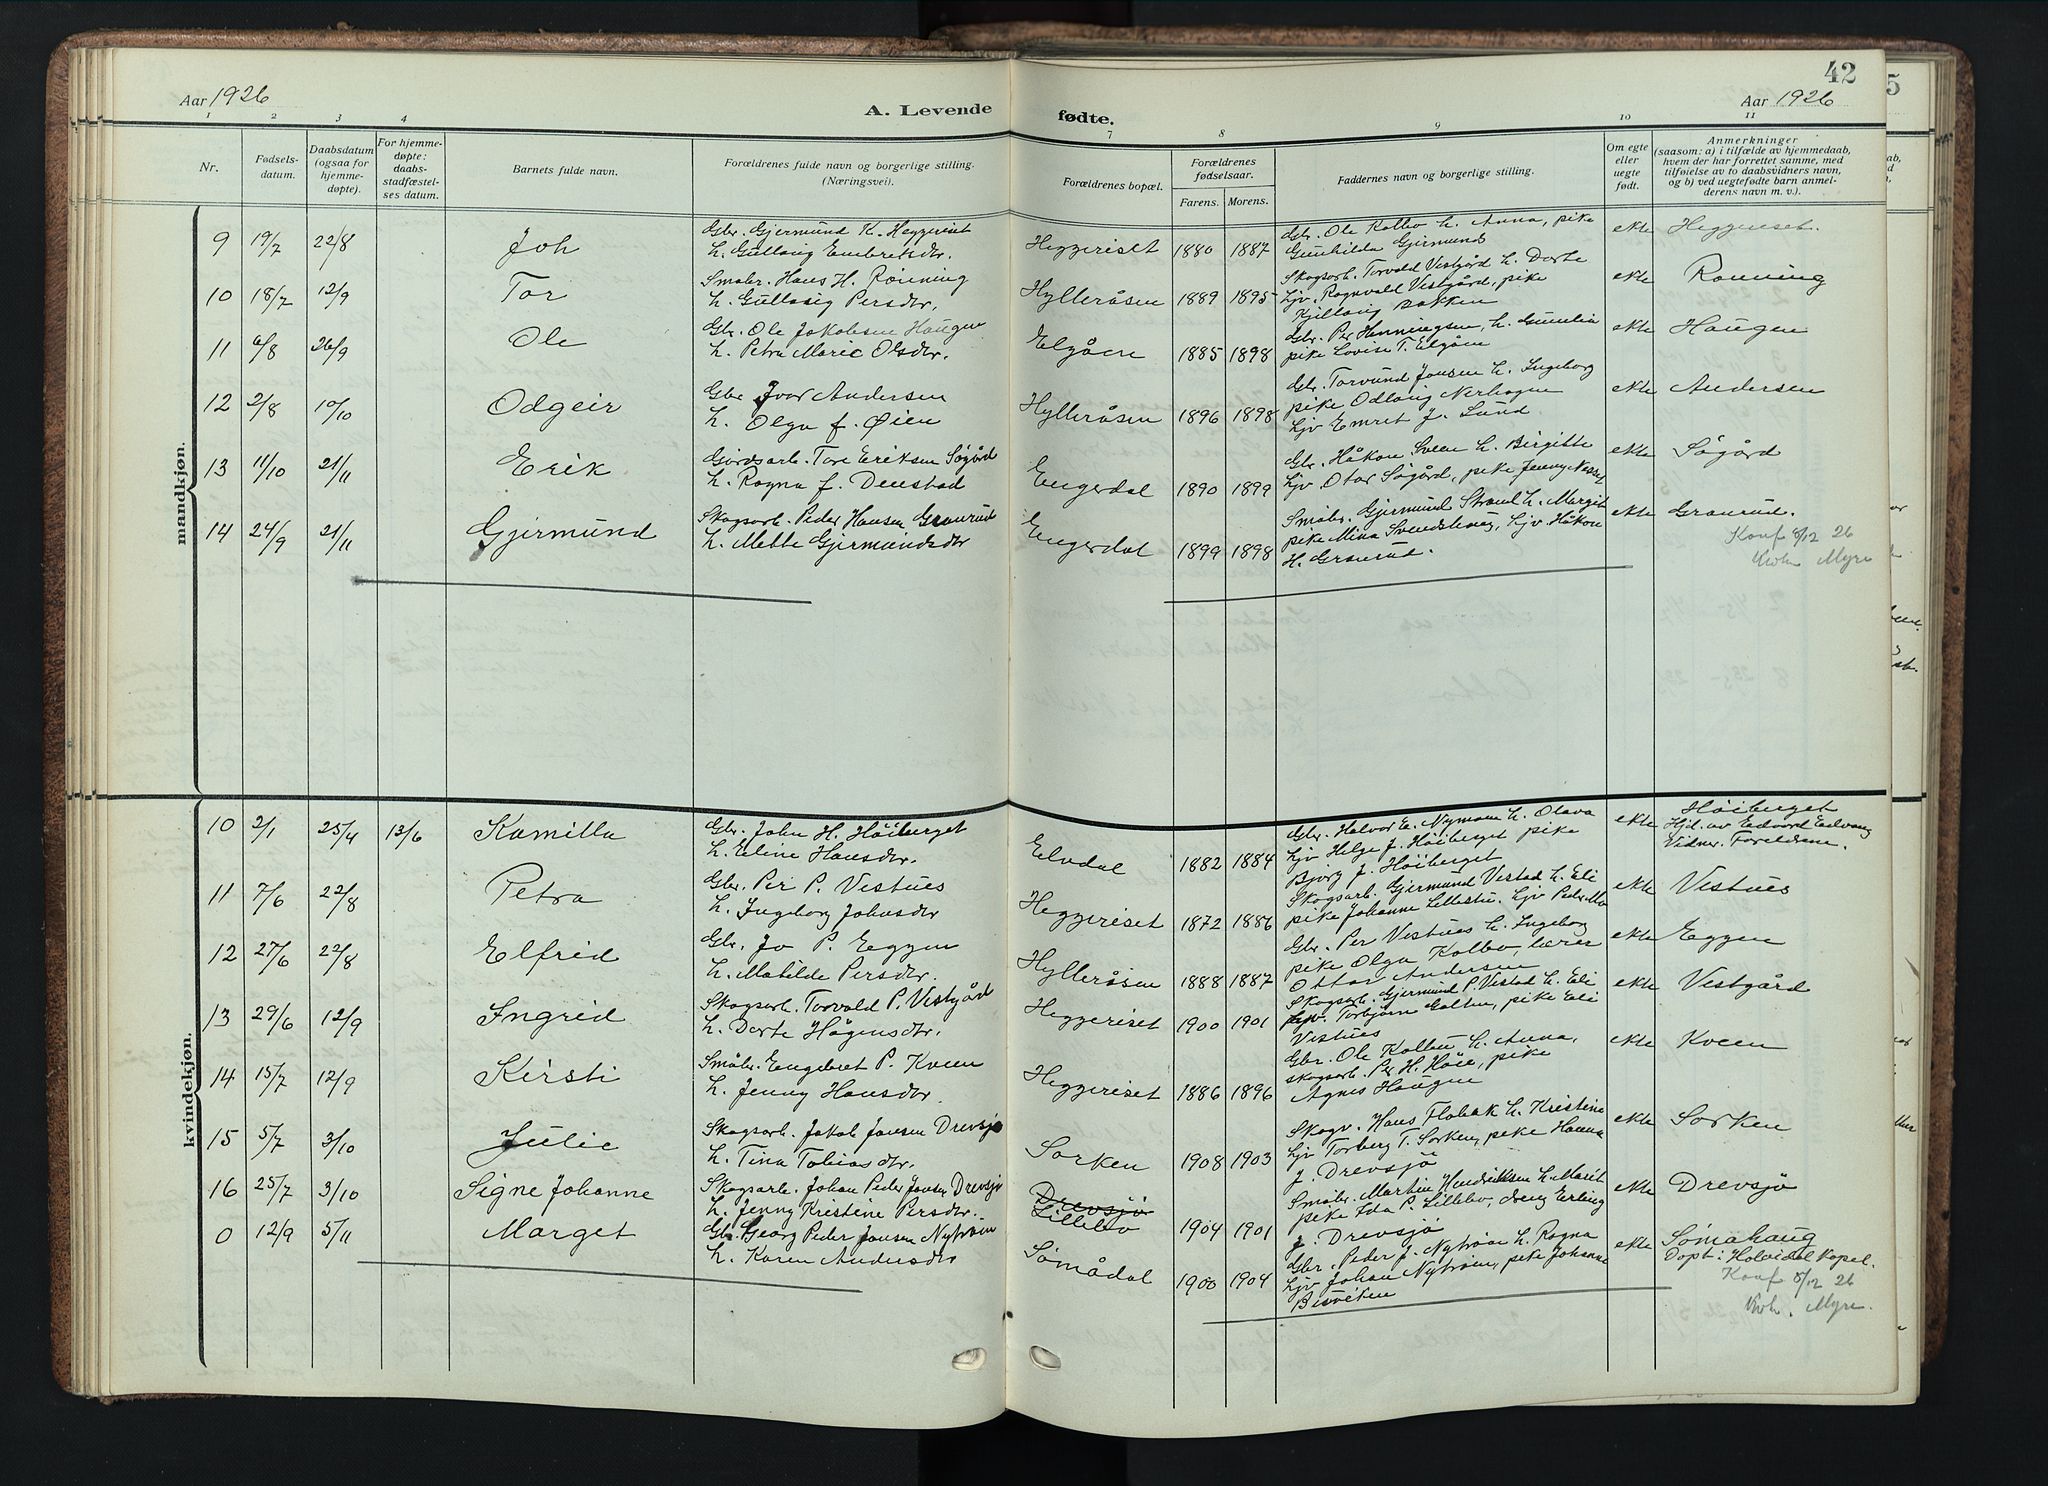 Aar 1926
A. Levende
fødte.
42
Aar 1926
5
1 2 3 4 7 8 9 10 11
Nr.
Fødsels-
datum.
Daabsdatum
(ogsaa for
hjemme-
døpte).
For hjemme-
døpte:
daabs-
stadfæstel-
ses datum.
Barnets fulde navn.
Forældrenes fulde navn og borgerlige stilling.
(Næringsvei).
Forældrenes bopæl.
Forældrenes
fødselsaar.
Farens. Morens.
Faddernes navn og borgerlige stilling.
Om egte
eller
uegte
født.
Anmerkninger
(saasom: a) i tilfælde av hjemmedaab,
hvem der har forrettet samme, med
tilføielse av to daabsvidners navn,
og b) ved uegtefødte barn anmel-
derens navn m. v.).
mandkjøn.
9 19/7 22/8 Joh
Gbr. Gjermund K. Heggeriset
h. Gullaug Embretsdtr.
Heggeriset 1880 1887
Gbr. Ole Kolbo h. Anna, pike
Gunhilda Gjermunds
ekte Heggeriset.
10 18/7 12/9 Tor
Småbr. Hans H. Rønning
h. Gullaug Persdtr.
Hylleråsen 1889 1895
Skogsarb. Torvald Vestgård h. Dorte
Ljv. Rognvald Vestgård, pike
Kjellaug Bakken
ekte Rønning
11 6/8 26/9 Ole
Gbr. Ole Jakobsen Haugen
h. Petra Marie Olsdtr.
Elgåen 1885 1898
Gbr. Per Henningsen, h. Gunelia
pike Lovise T. Elgåen
ekte Haugen
12 2/8 10/10 Odgeir
Gbr Ivar Andersen
h. Olga f. Øien
Hylleråsen 1896 1898
Gbr. Torvund Jonsen h. Ingeborg
pike Odlaug Nerhagen
Ljv Emret J. Lund
ekte Andersen
13 11/10 21/11 Erik
Gårdsarb. Tore Eriksen Søgård
h. Ragna f. Denstad
Engerdal 1890 1899
Gbr. Håkon Sveen h. Birgitte
Ljv. Otar Søgård, pike Jenny
ekte Søgård
14 24/9 21/11 Gjermund
Skogsarb. Peder Hansen Granrud
h. Mette Gjermundsdtr
Engerdal 1899 1898
Småbr. Gjermund Strand h. Margit
pike Mina Svendshaug, Ljv Håkon
H. Granrud.
ekte Granrud.
Konf 8/12 26
Kvh. Myre
kvindekjøn.
10 2/1 25/4 13/6 Kamilla
Gbr. John H. Höiberget
h. Eline Hansdtr.
Elvdal 1882 1884
Gbr. Halvor E. Nymoen h. Olava
Ljv Helge J. Höiberget pike
Bjørg J. Höiberget
ekte Höiberget
Hjd. av Edvard Edvang
Vidner. Foreldrene.
11 7/6 22/8 Petra
Gbr. Per P. Vestues
h. Ingeborg Johnsdtr
Heggeriset 1872 1886
Skogsarb. Gjermund Vestad h. Eli
pike Johanne Lillestu. Ljv Peder Mo
ekte Vestues
12 27/6 22/8 Elfrid
Gbr. Jo P. Eggen
h. Matilde Persdtr.
Hylleråsen 1888 1887
Gbr. Per Vestues h. Ingeborg
pike Olga Kolbo, lærer
Ottar Andersen
ekte Eggen
13 29/6 12/9 Ingrid
Skogsarb. Torvald P. Vestgård
h. Dorte Høgensdtr.
Heggeriset 1900 1901
Skogsarb. Gjermund P. Vestad h. Eli
Ljv. Torbjørn Galten, pike Eli
Vestues
ekte Vestgård
14 15/7 12/9 Kirsti
Småbr. Engebret P. Kveen
h. Jenny Hansdtr.
Heggeriset 1886 1896
Gbr. Ole Kolbu h. Anna,
skogsarb. Per H. Höie, pike
Agnes Haugen
ekte Kveen
15 5/7 3/10 Julie
Skogsarb. Jakob Jonsen Drevsjø
h. Tina Tobiasdtr.
Sorken 1908 1903
Skogv. Hans Flobak h. Kristine
Ljv Torberg T. Sorken, pike Hanna
J. Drevsjö
ekte Sorken
16 25/7 3/10 Signe Johanne
Skogsarb. Johan Peder Jonsen Drevsjø
h. Jenny Kristine Persdtr.
Drevsjö
Lillebo 1904 1901
Småbr. Martin Hendriksen h. Marit
pike Ida P. Lillebo, dreng Erling
J. Drevsjö
ekte Drevsjö
0 12/9 5/11 Marget
Gbr. Georg Peder Jonsen Nytrøen
h. Karen Andersdtr
Sømådal 1900 1904
Gbr. Peder J. Nytrøen h. Ragna
Ljv Johan Nytrøen, pike Johanne
Bisviken
ekte Sømåhaug
Døpt: Holvidal kapel.
Konf 8/12 26
Kvh. Myre.